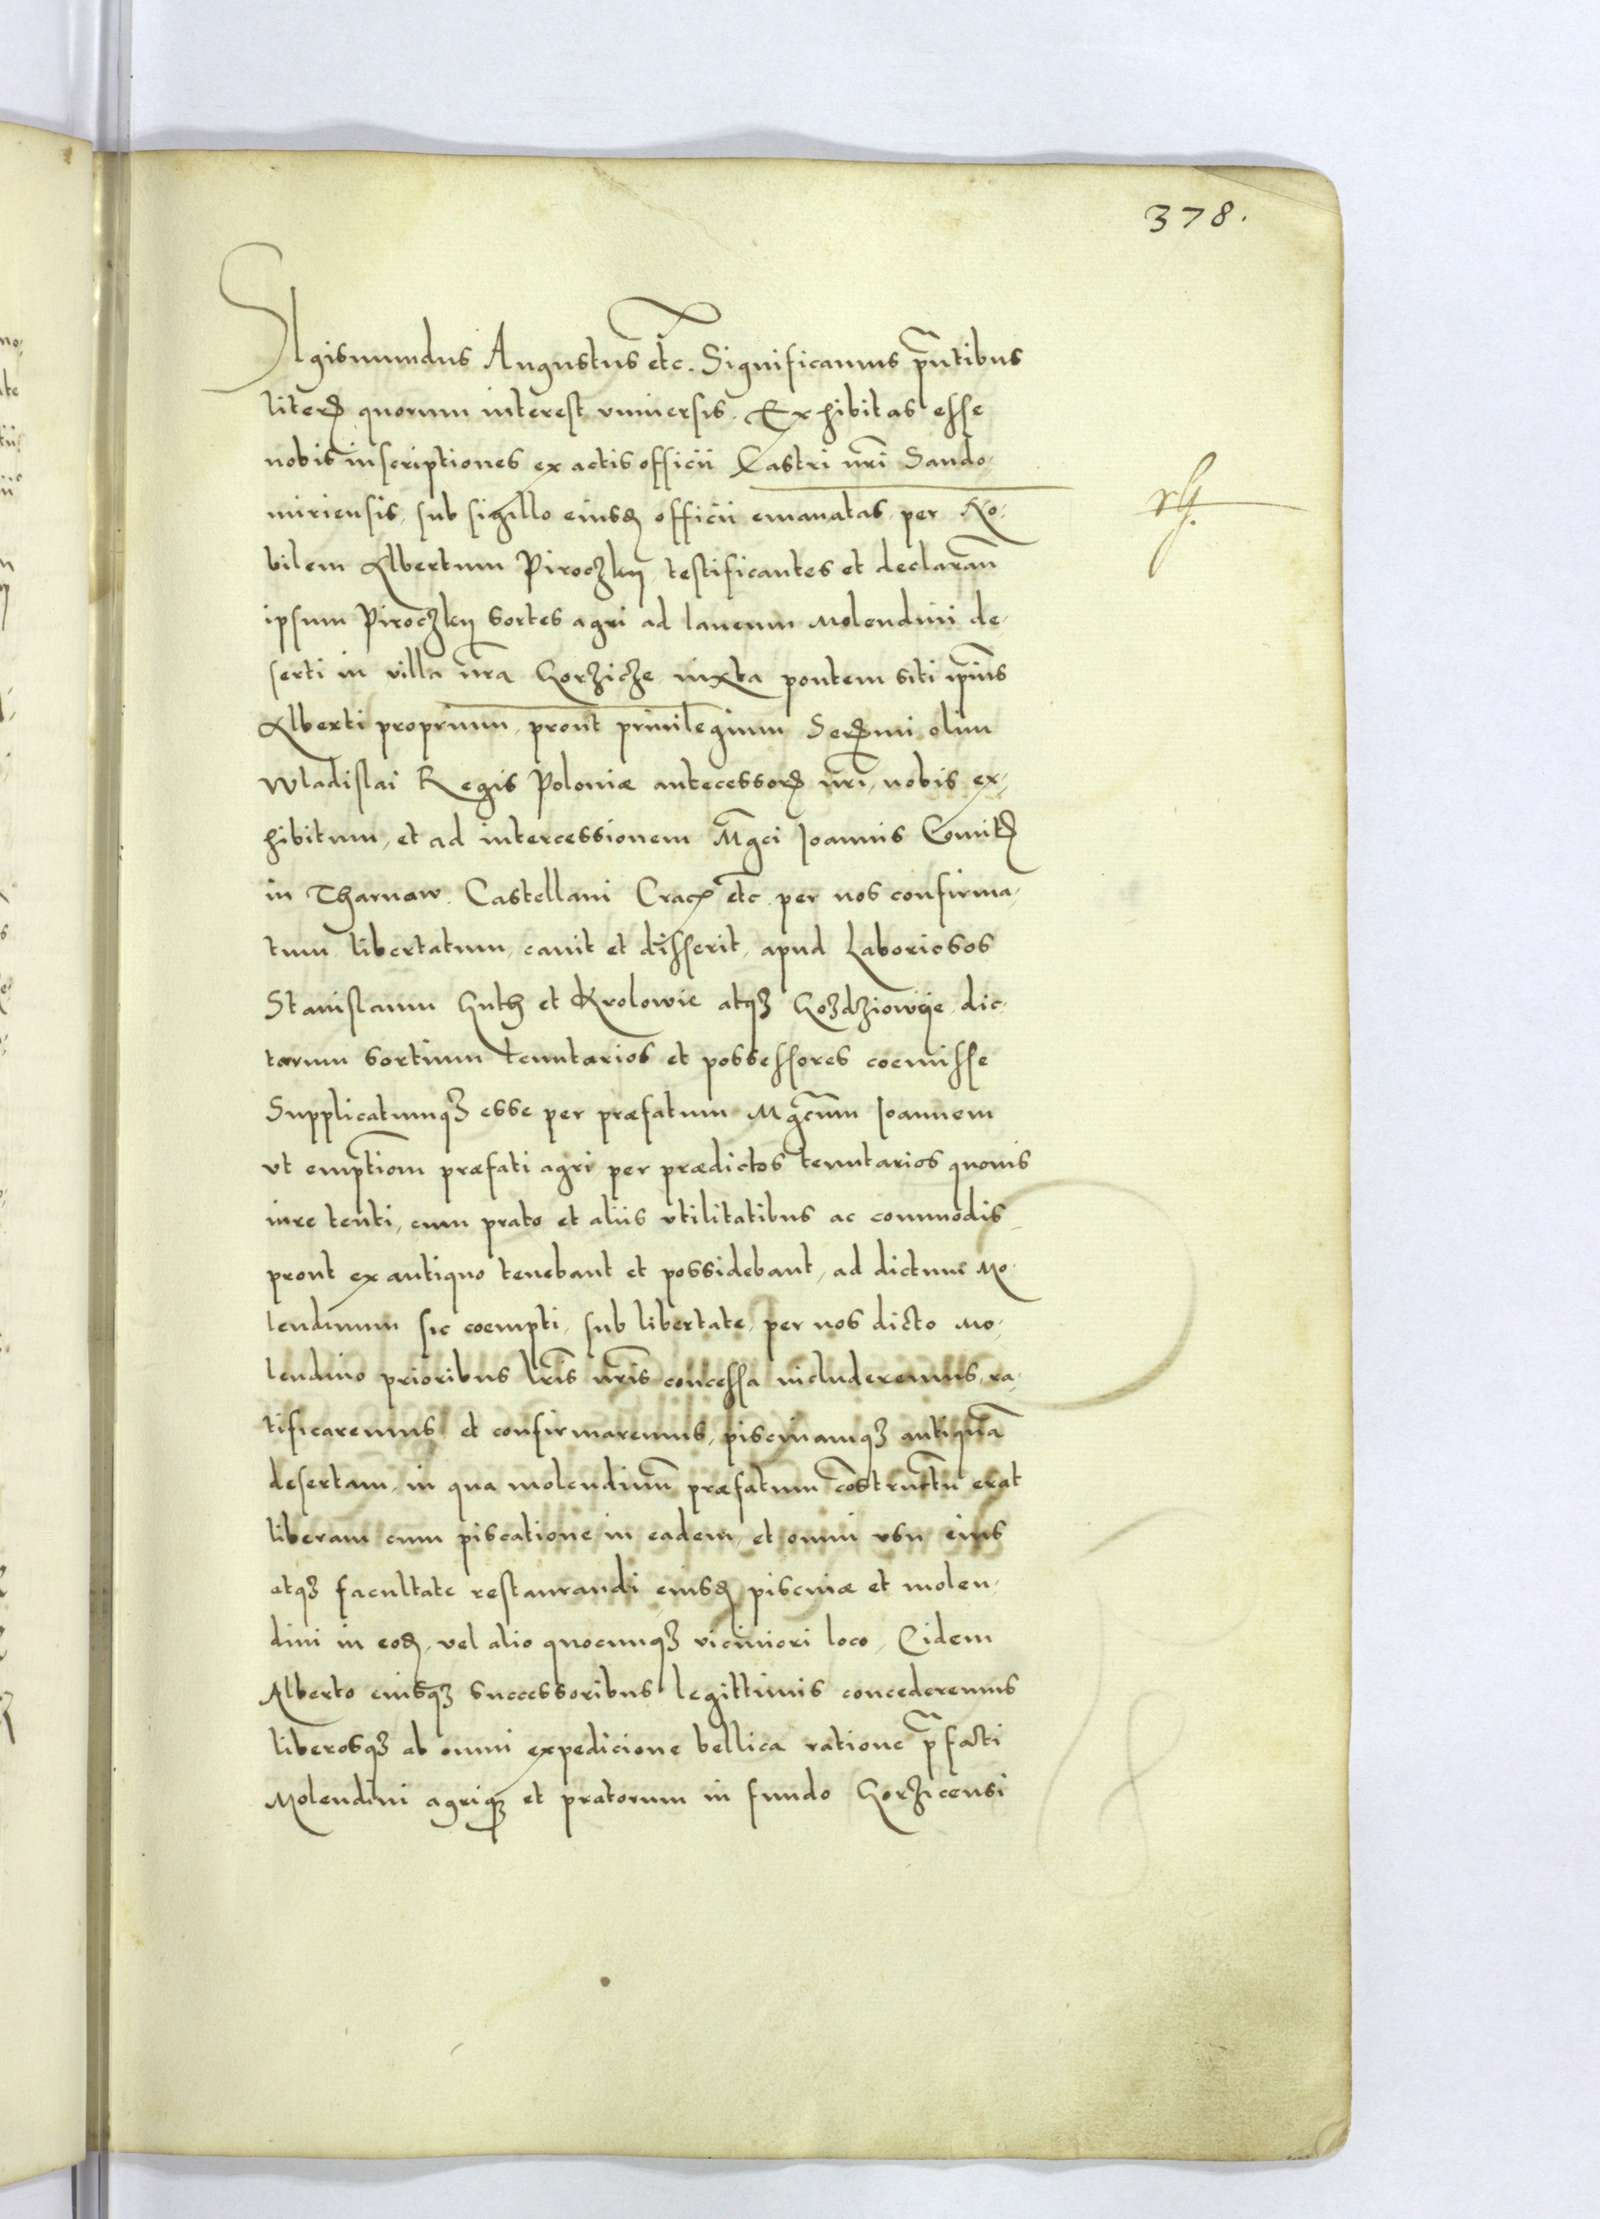 378.
SIgismundus Augustus etc. Significamus pñtibus
literꝭ quorum interest vniuersis. Exhibitas esse
nobis inscriptiones ex actis officii Castri nr̃i Sando-
miriensis, sub sigillo eiusꝭ officii emanatas, per No-
bilem Albertum Piroczky, testificantes et declarañ
ipsum Piroczky sortes agri ad laneum Molendini de-
serti in villa nr̃a Gorzicze iuxta pontem siti ip̃ius
Alberti proprium, prout priuilegium Serꝭmi olim
Wladislai Regis Poloniæ antecessorꝭ nr̃i, nobis ex-
hibitum, et ad intercessionem Mg̃ci Joannis Comitꝭ
in Tharnow. Castellani Cracꝭ etc per nos confirma-
tum libertatum, cauit et disserit, apud Laboriosos
Stanislaum Guth et Krolowie atqȝ Gozdziowye, dic-
tarum sortium tenutarios et possessores coemisse
Supplicatumqȝ esse per præfatum Mg̃cum Joannem
vt emptiom̃ præfati agri per prædictos tenutarios quouis
iure tenti, cum prato et aliis vtilitatibus ac commodis
prout ex antiquo tenebant et possidebant, ad dictum Mo-
lendinum sic coempti, sub libertate, per nos dicto Mo-
lendino prioribus lr̃is nr̃is concessa includeremus, ra-
tificaremus et confirmaremus, piscinamqȝ antiquã
desertam, in qua molendinũ præfatum cõstructũ erat
liberam cum piscatione in eadem, et omni vsu eius
atqȝ facultate restaurandi eiusꝭ piscinæ et molen-
dini in eoꝭ, vel alio quocunqȝ viciniori loco, Eidem
Alberto eiusqȝ successoribus legittimis concederemus
liberosqȝ ab omni expedicione bellica ratione p̃facti
Molendini agriqȝ et pratorum in fundo Gorzicensi